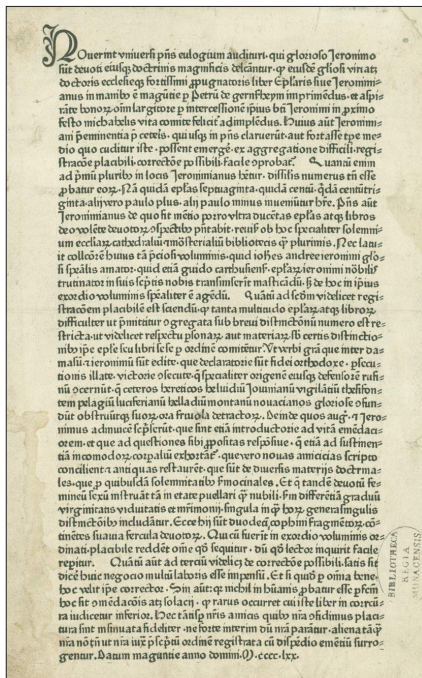 NOverint vniversi pñs eulogium audituri · qui glorioso Ieronimo
sūt devoti eiusq; doctrinis magnificis delectantur · ꝙ eiusdē gliosi viri atq;
doctoris ecclesieq; fortissimi ꝓpugnatoris liber Eplaris sive Ieronimi-
anus in manibꝰ ē magūtie ꝑ Petrū de gernsheym imprimēdus · et aspi-
rāte bonorꝝ oīm largitore ꝑ intercessionē ipius btī Ieronimi in ꝓximo
festo michahelis vita comite felicit̾ adimplēdus. Huius aūt Ieronimi-
ani p̄eminentia p̄ ceteis · qui usq; in pñs claruerūt · aut fortasse tꝑe me-
dio quo cuditur iste · possent emerge̾ · ex aggregatione difficili · regi-
stracōe placabili · correctōe possibili · facile ꝯprobat̾. Quantū enim
ad p̄mū pluribꝰ in locis Ieronimianus hētur · dissilis numerus tn̄ esse
ꝓbatur eorꝝ · Nā quidā eplas septuaginta · quidā centū · q̄dā centūtri-
ginta · alijvero paulo plus · alij paulo minus inveniūtur hr̄e. Pn̄s aūt
Ieronimianus de quo fit mētio porro vltra ducētas eplas atq; libros
deo volēte devotorꝝ ꝯspectibꝰ pn̄tabit̾ · revisꝭ ob hoc specialiter solemni-
um eccliarꝝ cathedraliū · mōsterialiū bibliotecis q̄ plurimis. Nec latu-
it collcōrē huius tā p̄ciosi voluminis · quid iohēs andree ieronimi glo-
si sp̄ealis amator · quid etiā guido carthusiens̾ · eplarꝝ ieronimi nōbilis
trutinator in suis sc̄ptis nobis transmiserīt masticādū · sꝫ de hoc in ipius
exordio voluminis sp̄ealiter ē agēdū. Quātū ad sc̄dm videlicet regi-
stracōem placibilē est sciendū · ꝙ tanta multitudo eplarꝝ atq; librorꝝ
difficulter ut p̄mittitur ꝯgregata sub brevi distinctōnū numero est re-
stricta · ut videlicet respectu p̄sonarꝝ aut materiarꝝ sb̄ certis distinctio-
nibꝰ ipe eple seu libri se se ꝑ ordinē comitētur. Vt verbi grā̄ que inter da-
masū · ieronimū sūt edite · que declaratorie sūt fidei orthodoxe · ꝑsecu-
tionis illate · victorie ꝯsecute · q̄ sp̄ealiter origenē eiusq; defensorē rufi-
nū ꝯcernūt · q̄ ceteros hereticos helvidiū Iovinianū vigilātiū thesifon-
tem pelagiū luciferianū helladiū montanū novacianos gloriose ꝯfun-
dūt obstruūtq; suorꝝ ora frivola detractorꝝ. Deinde quos augꝰ · Iero-
nimus adinvicē sc̄pserūt · que sint etiā introductorie ad vitā emēdaci-
orem · et que ad questiones sibi ꝓpositas respōsive · q̄ etiā ad sustinen-
tiā incomodorꝝ corpaliū exhortāt̾ · que vero novas amicicias scripto
concilient · antiquas restaurēt · que sūt de diversis materijs doctrina-
les · que ꝓ quibusdā solemnitatibꝰ s̄mocinales. Et q̄ tandē devotū fe-
mineū sexū instruāt tā in etate puellari q̄ nubili · scd̄m differētiā graduū
virginitatis viduitatis et mr̄imonij · singula in q̄ horꝝ generasingulis
distinctōibꝰ includātur. Ecce hij sūt duodecī cophini fragmētorꝝ · cō-
tinētes suavia fercula devotorꝝ. Qui cū fuerīt in exordio voluminis or-
dinati · placibile reddēt om̄e qd̄ sequitur · dū qd̄ lector inquirit facile
repitur. Quātū aūt ad terciū videlicꝫ de correctōe possibili · satis fit
dicēe huic negocio multū laboris esse impensū · Et si quid p̄ oīnia bene ·
hoc velit ipe corrector. Sin aūt · q̄ nichil in hūanis ꝓbatur esse p̄fc̄m
hoc sit ꝯmēdacōis atq; solacij · ꝙ rarus occurret cui iste liber in corectu-
ra iudicetur inferior. Hec tātisp̄ nris amicis quibꝰ nr̄a ꝯfidimus placi-
tura sint insinuata fideliter · ne forte interim dū nr̄a parātur · aliena tāꝙ̄
nr̄a nō tn̄ ut nr̄a iuxꝭ p̄sc̄ptū ordinē registrata cū dispēdio emētiū surro-
gentur. Datum maguntie anno domini · M · cccc · lxx ·
BIBLIOTHECA
REGIA
MONACENSIS